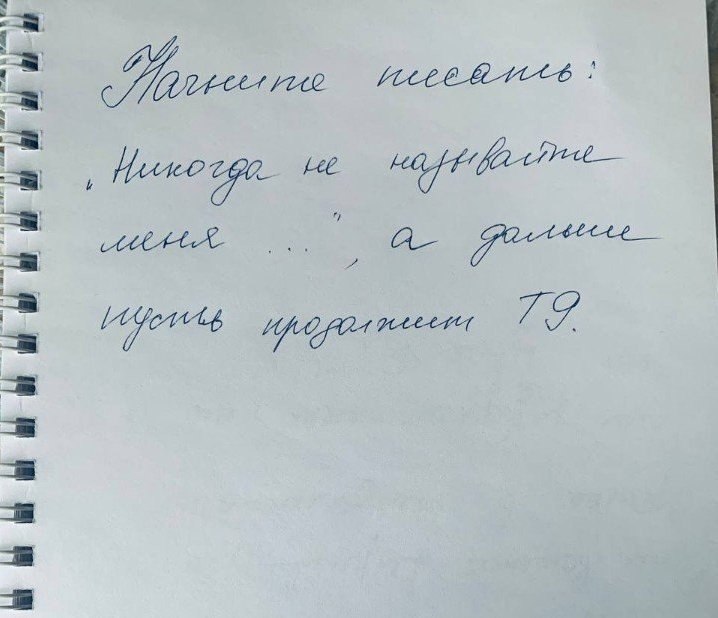 Начните писать:
„Никогда не называйте
меня ...", а дальше
пусть продолжит Т9.